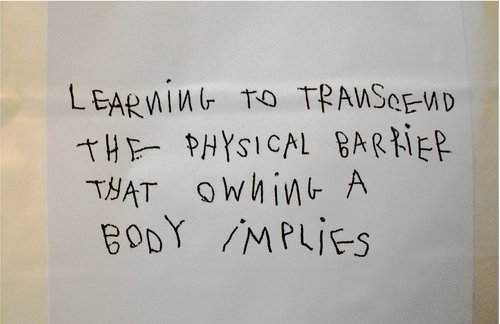 LEARNING TO TRANSCEND
THE PHYSICAL BARRIER
THAT OWNING A
BODY IMPLIES